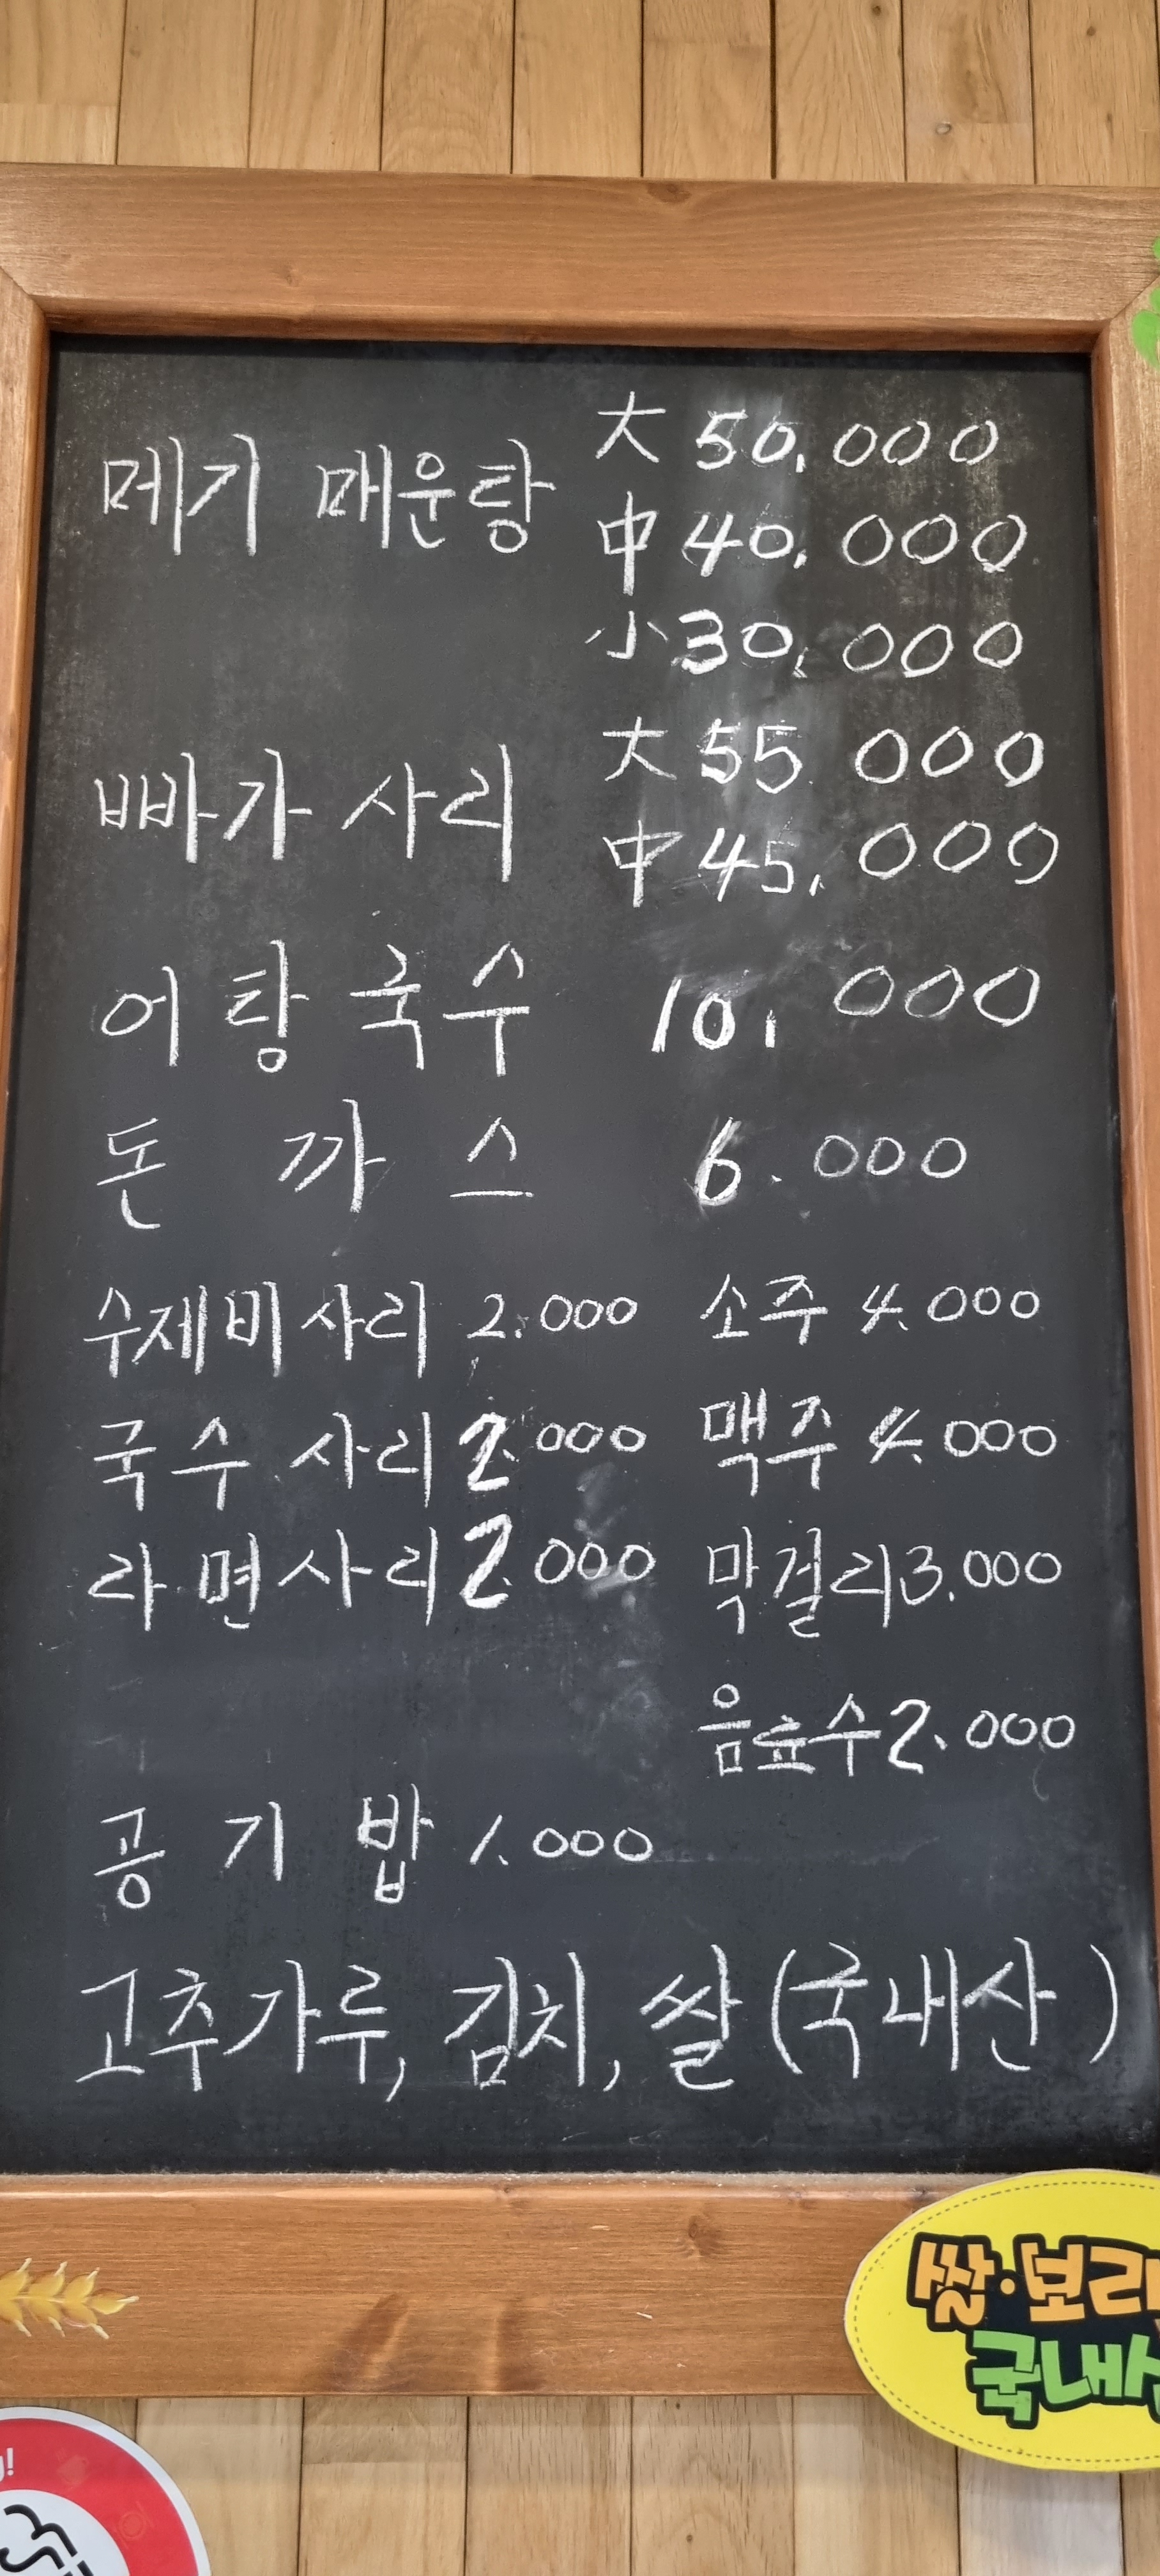 메기 매운탕 大 50,000
中 40,000
小 30,000
빠가사리 大 55 000
中 45,000
어탕국수 10,000
돈까스 6.000
수제비사리 2.000 소주 4.000
국수사리 2.000 맥주 4.000
라면사리 2.000 막걸리 3.000
음료수 2.000
공기밥 1.000
고추가루, 김치, 쌀 (국내산)
쌀·보리
국내산